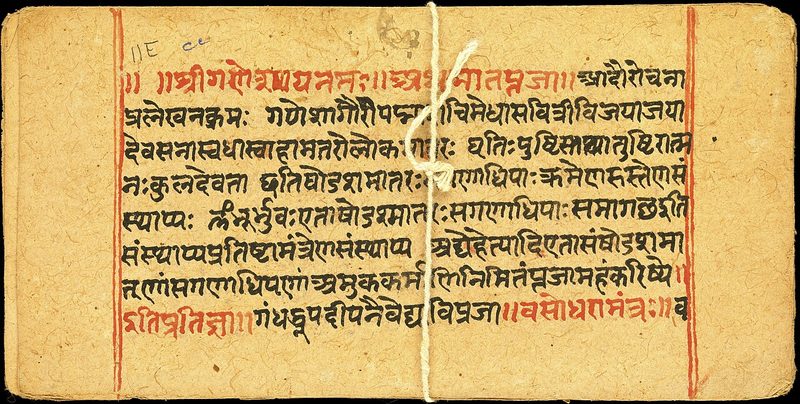 ॥E cc
॥ ॥श्रीगणेशायनमः॥अथ मातृपूजा॥आदौरोचना
प्रलेखनक्रमः गणेशगौरीपद्मा शचिमेधासवित्रीविजयाजया
देवसेनास्वधास्वाहामातरोलोकमातरः धृतिःपुष्टिस्तथातुष्टिरात्म
नःकुलदेवता इतिषोडशमातरः सगणाधिपाःक्रमेणहस्तेणसं
स्थाप्यः ॐभूर्भुवःएताषोडशमातरःसगणाधिपाःसमागछइति
संस्थाप्यप्रतिष्टामंत्रेणसंस्थाप्य अद्येहेत्यादिएतासंषोडशमा
तृणांसगणाधिपणां अमुककर्माणिनिमितंपूजामहंकरिष्ये॥
इतिप्रतिज्ञा॥गंधधूपदीपनैवेद्य विपूजा॥वसोधरामंत्रः॥व